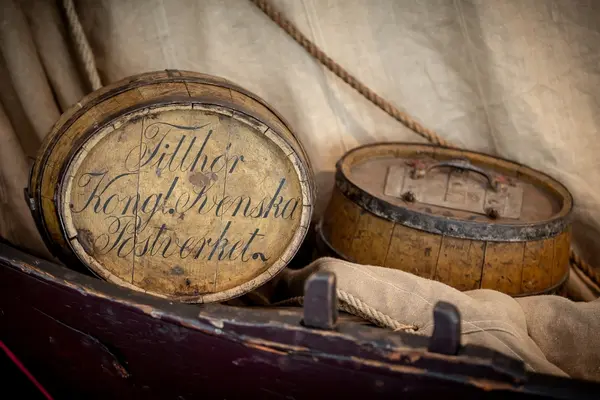 Tillhör
Kongl. Svenska
Postverket.